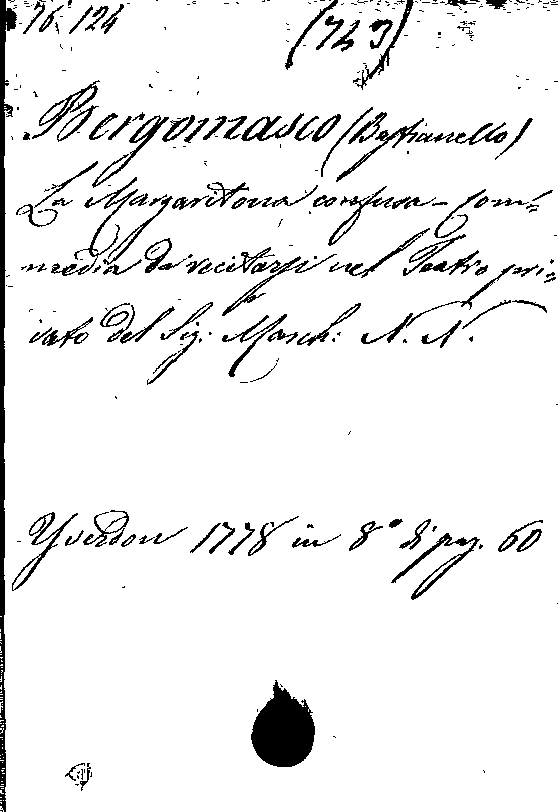 76 124
(743)
Bergomasco (Bastianello)
La Margaritona confusa - Com=
media da recitarsi nel Teatro pri=
vato del Sig: March: N. N.
Yverdon 1778 in 8° di pag. 60